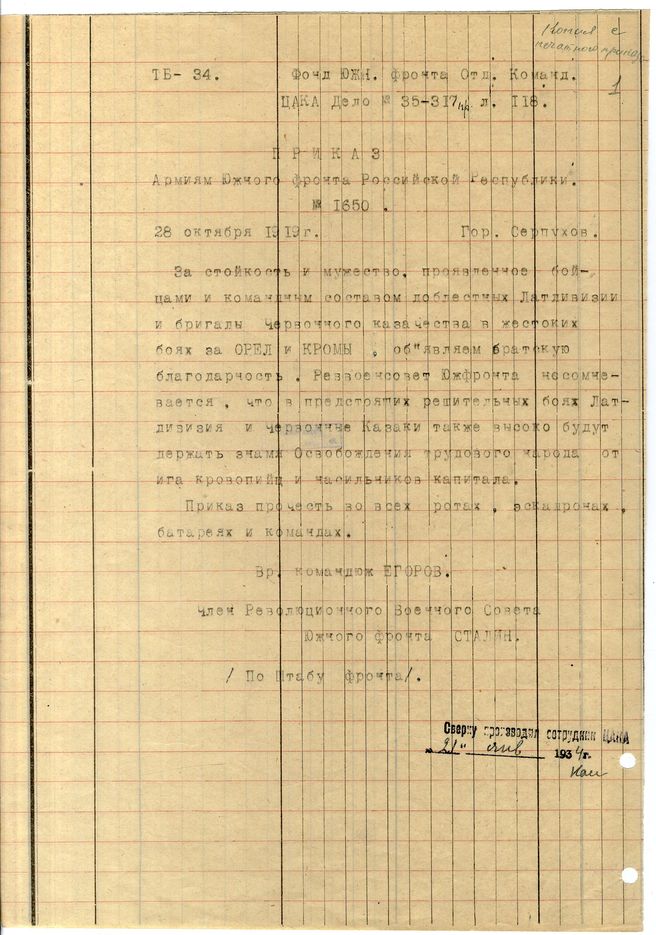 Копия с
печатного приказа
1
ТБ- 34. Фонд ЮЖН. фронта Отд. Команд.
ЦАКА Дело № 35-317пр. л. 118.
ПРИКАЗ
Армиям Южного фронта Российской Республики.
№ 1650 .
28 октября 1919г. Гор. Серпухов.
За стойкость и мужество, проявленное бой-
цами и командным составом доблестных Латдивизии
и бригады Червонного казачества в жестоких
боях за ОРЕЛ и КРОМЫ , об"являем братскую
благодарность . Реввоенсовет Южфронта несомне-
вается , что в предстоящих решительных боях Лат-
дивизия и червонные Казаки также высоко будут
держать знамя Освобождения трудового народа от
ига кровопийц и насильников капитала.
Приказ прочесть во всех ротах , эскадронах ,
батареях и командах.
Вр. командюж ЕГОРОВ.
Член Революционного Военного Совета
Южного фронта СТАЛИН.
/ По Штабу фронта/.
Сверку производил сотрудник ЦАКА
„21" янв 1934г.